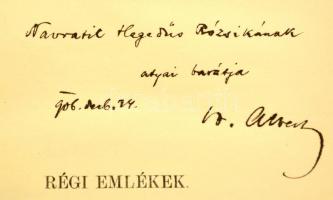 Navratil Hegedűs Rózsikának
atyai barátja
906. decb. 24.
Albert
RÉGI EMLÉKEK.